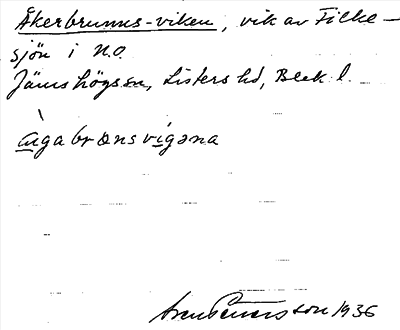 Åkerbrunns-viken, vik av Filke-
sjön i N.O.
Jämshögs sn, Listers hd, Blek. l.
aigabrɷnsvigəna
1936